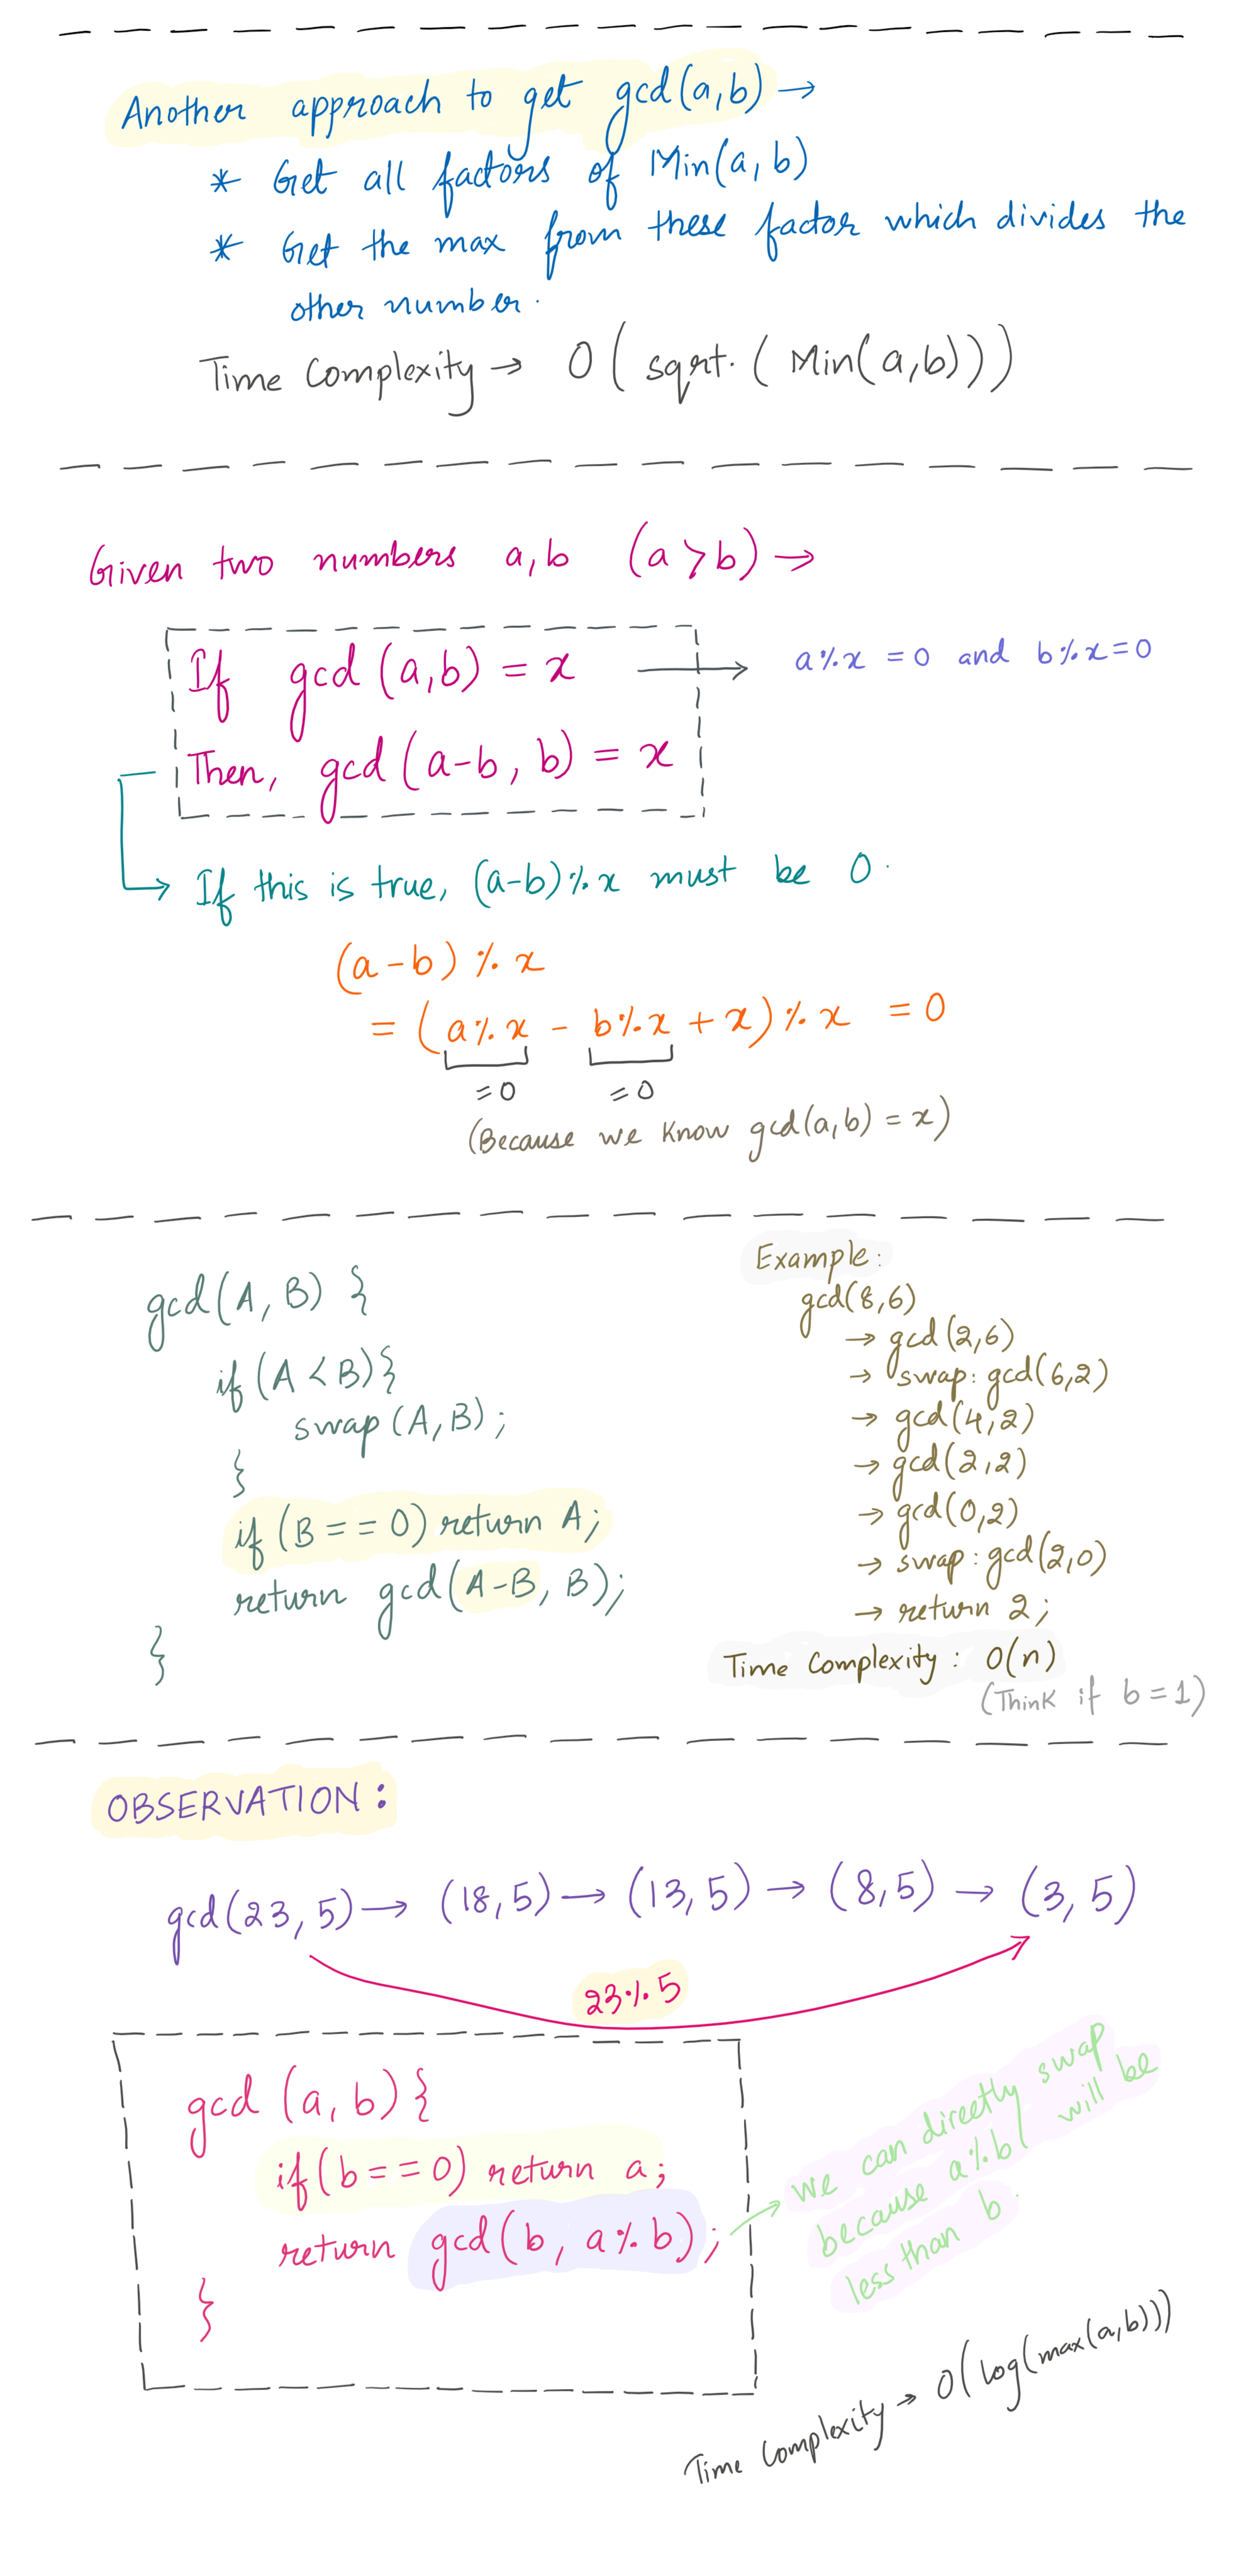 Another approach to get gcd(a,b) →
* Get all factors of Min(a, b)
* Get the max from these factor which divides the
other number.
Time Complexity → O( sqrt. ( Min(a,b)))
Given two numbers a, b (a > b) →
If gcd (a,b) = x → a%x = 0 and b%x = 0
Then, gcd (a-b, b) = x
→ If this is true, (a-b)%x must be 0.
(a-b) % x
= (a%x - b%x + x) % x = 0
= 0 = 0
(Because we know gcd(a,b) = x)
gcd(A, B) {
if (A < B){
swap (A, B) ;
}
if (B == 0) return A;
return gcd(A-B, B);
}
Example:
gcd(8,6)
→ gcd(2,6)
→ swap: gcd(6,2)
→ gcd(4,2)
→ gcd(2,2)
→ gcd(0,2)
→ swap: gcd(2,0)
→ return 2;
Time Complexity : O(n)
(Think if b = 1)
OBSERVATION :
gcd(23, 5) → (18, 5) → (13, 5) → (8,5) → (3, 5)
23%5
gcd (a, b) {
if(b == 0) return a;
return gcd(b, a%b);
}
→ we can directly swap
because a%b will be
less than b.
Time Complexity → O(log(max(a,b)))